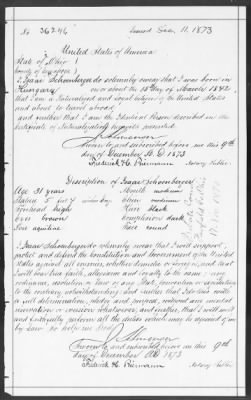 No 36246 Issued Dec 11. 1873
United States of America
State of Ohio }
County of
I Isaac Schoenberger do solemnly swear that I was born in
Hungary on or about the 15th day of March 1842
that I am a Naturalized and loyal citizen of the United States
and about to travel abroad
and further that I am the Identical Person described in the
certificate of Naturalization herewith presented.
Sworn to and subscribed before me this 9th
day of December A.D. 1873
Frederick H. Riemann Notary Public.
Description of Isaac Schoenberger
Age 31 years Mouth medium
Stature 5 feet 7 inches Eng. Chin medium
Forehead high Hair black
Eyes brown Complexion dark
Nose aquiline Face round
I Isaac Schoenberger do solemnly swear that I will support,
protect and defend the Constitution and Government of the United
States against all enemies, whether domestic or foreign, and that
I will bear true faith, allegiance and loyalty to the same; any
ordinance, resolution or law of any State, Convention or Legislature
to the contrary, notwithstanding: and further that I do this with
a full determination, pledge and purpose, without any mental
reservation or evasion whatsoever; and further, that I will well
and faithfully perform all the duties which may be required of me
by law. So help me God.
Sworn to and subscribed before me this 9th
day of December A.D. 1873
Frederick H. Riemann
Notary Public.